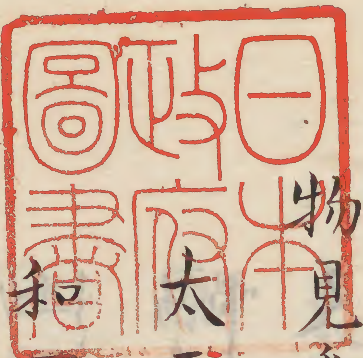 日本
政府
圖書
物見
太
和